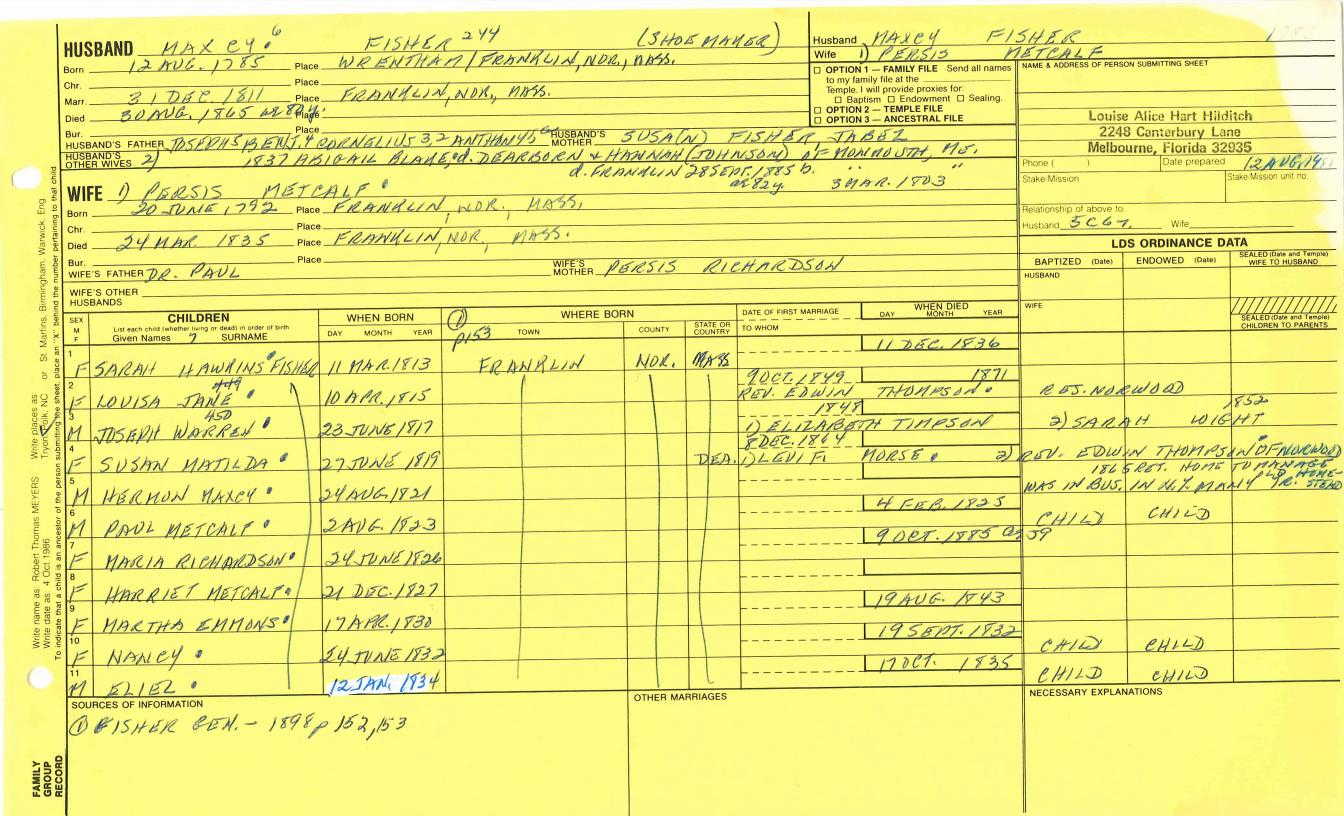 HUSBAND MAXCY 6 FISHER 244 (SHOEMAKER)
Born 12 AUG. 1785 Place WRENTHAM/FRANKLIN, NOR., MASS.
Chr. Place
Marr. 31 DEC 1811 Place FRANKLIN, NOR., MASS.
Died 30 AUG. 1865 ae 80y. Place
Bur.
HUSBAND'S FATHER JOSEPH5 BENJ.4 CORNELIUS 3,2 ANTHONY HUSBAND'S MOTHER SUSA(N) FISHER, JABEZ
HUSBAND'S OTHER WIVES 2) 1837 ABIGAIL BLAKE d. DEARBORN & HANNAH (JOHNSON) OF MONMOUTH, ME.
d. FRANKLIN 28 SEPT. 1885 b. " "
ae 82y. 3 MAR. 1803
WIFE 1) PERSIS METCALF
Born 20 JUNE 1792 Place FRANKLIN, NOR., MASS.
Chr. Place
Died 24 MAR 1835 Place FRANKLIN, NOR., MASS.
Bur. Place
WIFE'S FATHER DR. PAUL WIFE'S MOTHER PERSIS RICHARDSON
WIFE'S OTHER HUSBANDS
Husband MAXCY FISHER
Wife 1) PERSIS METCALF
☐ OPTION 1 — FAMILY FILE Send all names
to my family file at the
Temple. I will provide proxies for
☐ Baptism ☐ Endowment ☐ Sealing.
☐ OPTION 2 — TEMPLE FILE
☐ OPTION 3 — ANCESTRAL FILE
NAME & ADDRESS OF PERSON SUBMITTING SHEET
Louise Alice Hart Hilditch
2248 Canterbury Lane
Melbourne, Florida 32935
Phone ( ) Date prepared 12 AUG.
Stake/Mission Stake/Mission unit no.
Relationship of above to
Husband 5C6r. Wife
LDS ORDINANCE DATA
BAPTIZED (Date) ENDOWED (Date) SEALED (Date and Temple) WIFE TO HUSBAND
HUSBAND
WIFE
SEALED (Date and Temple) CHILDREN TO PARENTS
SEX M F CHILDREN WHEN BORN WHERE BORN DATE OF FIRST MARRIAGE WHEN DIED
List each child (whether living or dead) in order of birth
Given Names 7 SURNAME DAY MONTH YEAR TOWN COUNTY STATE OR COUNTRY TO WHOM DAY MONTH YEAR
① p153
1 11 DEC. 1836
F SARAH HAWKINS FISHER 11 MAR. 1813 FRANKLIN NOR. MASS
2 449 9 OCT. 1849 1871
F LOUISA JANE 10 APR. 1815 REV. EDWIN THOMPSON. RES. NORWOOD
3 450 1848 1852
M JOSEPH WARREN 23 JUNE 1817 1) ELIZABETH TIMPSON 2) SARAH WIGHT
4 8 DEC. 1864
F SUSAN MATILDA 27 JUNE 1819 DEA. 1) LEVI F. MORSE 2) REV. EDWIN THOMPSON OF NORWOOD
5 1865 RET. HOME TO MANAGE OLD HOMESTEAD
M HERMON MAXCY 24 AUG. 1821 WAS IN BUS. IN N.Y. MANY YR.
6 4 FEB. 1825
M PAUL METCALF 2 AUG. 1823 CHILD CHILD
7 9 OCT. 1885 ae 59
F MARIA RICHARDSON 24 JUNE 1826
8
F HARRIET METCALF 21 DEC. 1827
9 19 AUG. 1843
F MARTHA EMMONS 17 APR. 1830
10 19 SEPT. 1832
F NANCY 24 JUNE 1832 CHILD CHILD
11 17 OCT. 1835
M ELIEL 12 JAN. 1834 CHILD CHILD
SOURCES OF INFORMATION
① FISHER GEN. - 1898 p 152,153
OTHER MARRIAGES
NECESSARY EXPLANATIONS
Write name as: Robert Thomas MEYERS Write places as St. Martins, Birmingham, Warwick, Eng
Write date as: 4 Oct 1986 Tryon, Polk, NC or
To indicate that a child is an ancestor of the person submitting the sheet, place an "X" behind the number pertaining to that child
FAMILY GROUP RECORD